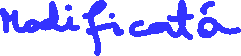 Modificató